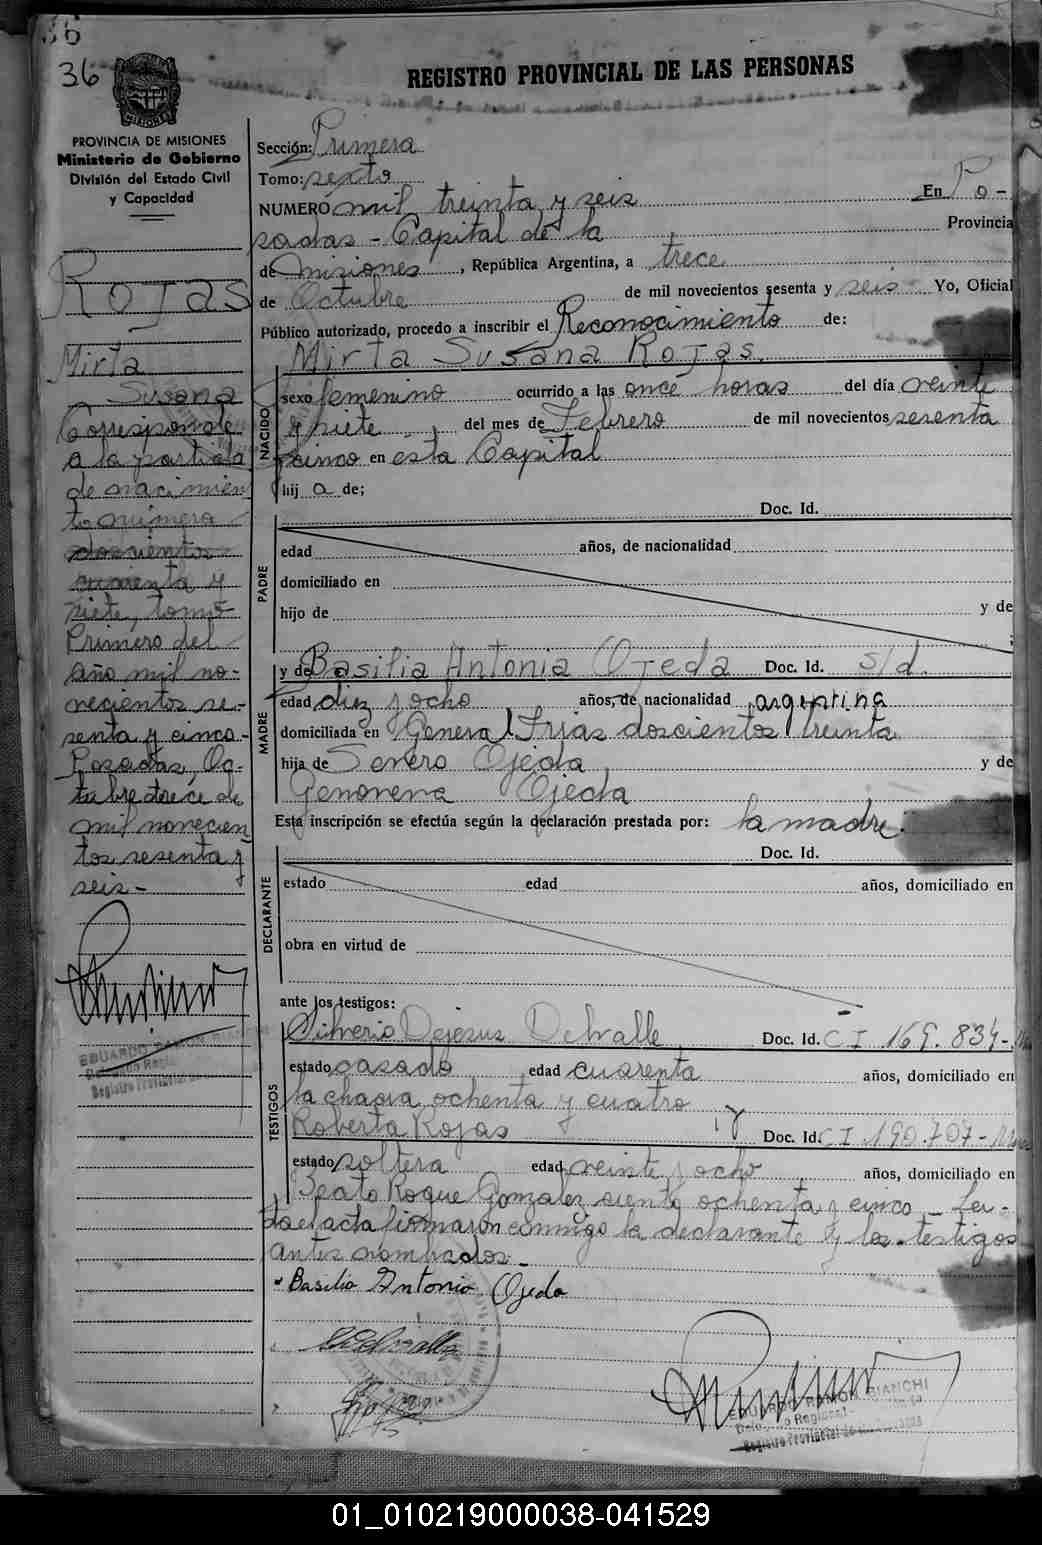 36
36
REGISTRO PROVINCIAL DE LAS PERSONAS
MISIONES
PROVINCIA DE MISIONES
Ministerio de Gobierno
División del Estado Civil
y Capacidad
Rojas
Mirta
Susana
Corresponde
a la partida
de nacimien
to número
doscientos
cuarenta y
siete, tomo
Primero del
año mil no-
vecientos se-
senta y cinco.-
Posadas, Oc-
tubre trece de
mil novecien
tos sesenta y
seis-
EDUARDO RAMON BIANCHI
Sección: Primera
Tomo: sexto
NUMERO mil treinta y seis En Po-
sadas - Capital de la Provincia
de Misiones, República Argentina, a trece
de Octubre de mil novecientos sesenta y seis Yo, Oficial
Público autorizado, procedo a inscribir el Reconocimiento de:
Mirta Susana Rojas.
NACIDO
sexo femenino ocurrido a las once horas del día veinte
y siete, del mes de Febrero de mil novecientos sesenta
y cinco en esta Capital
hij a de:
Doc. Id.
PADRE
edad años, de nacionalidad
domiciliado en
hijo de y de
;
MADRE
y de Basilia Antonia Ojeda Doc. Id. s/d.
edad diez y ocho años, de nacionalidad argentina
domiciliada en General Frias doscientos treinta
hija de Severo Ojeda y de
Genoveva Ojeda
Esta inscripción se efectúa según la declaración prestada por: la madre.
Doc. Id.
DECLARANTE
estado edad años, domiciliado en
obra en virtud de
ante los testigos:
TESTIGOS
Silverio Dejesus Delvalle Doc. Id. C I 169.834-
estado casado edad cuarenta años, domiciliado en
la chacra ochenta y cuatro
Roberta Rojas y Doc. Id. C I 190.707-
estado soltera edad veinte y ocho años, domiciliado en
Beato Roque Gonzalez ciento ochenta y cinco - Lei-
da el acta firmaron conmigo la declarante y los testigos
antes nombrados.-
Basilia Antonia Ojeda
EDUARDO RAMON BIANCHI
01_010219000038-041529